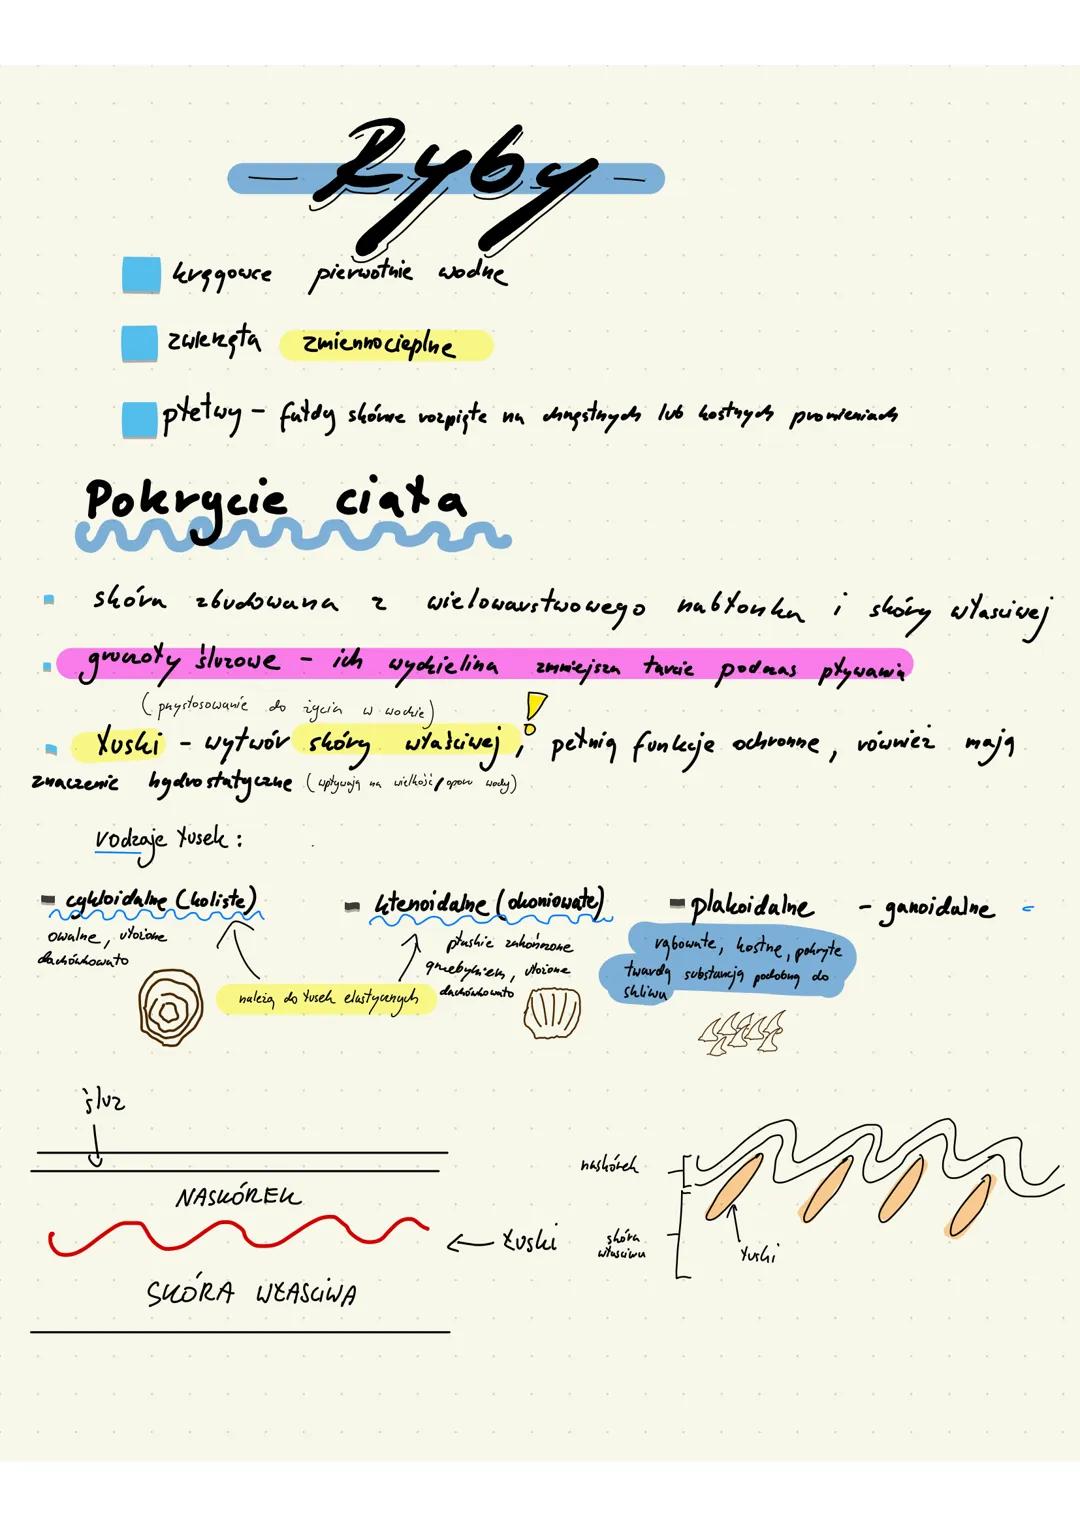 Ryby
kręgowce pierwotnie wodne
zwierzęta zmiennocieplne
płetwy – fałdy skórne rozpięte na chrzęstnych lub kostnych promieniach
Pokrycie ciała
skóra zbudowana z wielowarstwowego nabłonka i skóry właściwej
gruczoły śluzowe – ich wydzielina zmniejsza tarcie podczas pływania
(przystosowanie do życia w wodzie)
łuski – wytwór skóry właściwej, pełnią funkcje ochronne, również mają
znaczenie hydrostatyczne (wpływają na wielkość oporu wody)
rodzaje łusek:
- cykloidalne (koliste)
owalne, ułożone
dachówkowato
- ktenoidalne (okoniowate)
płaskie zakończone
grzebykiem, ułożone
dachówkowato
należą do łusek elastycznych
- plakoidalne
rąbowate, kostne, pokryte
twardą substancją podobną do
szkliwa
- ganoidalne
śluz
NASKÓREK
łuski
SKÓRA WŁAŚCIWA
naskórek
skóra
właściwa
łuski